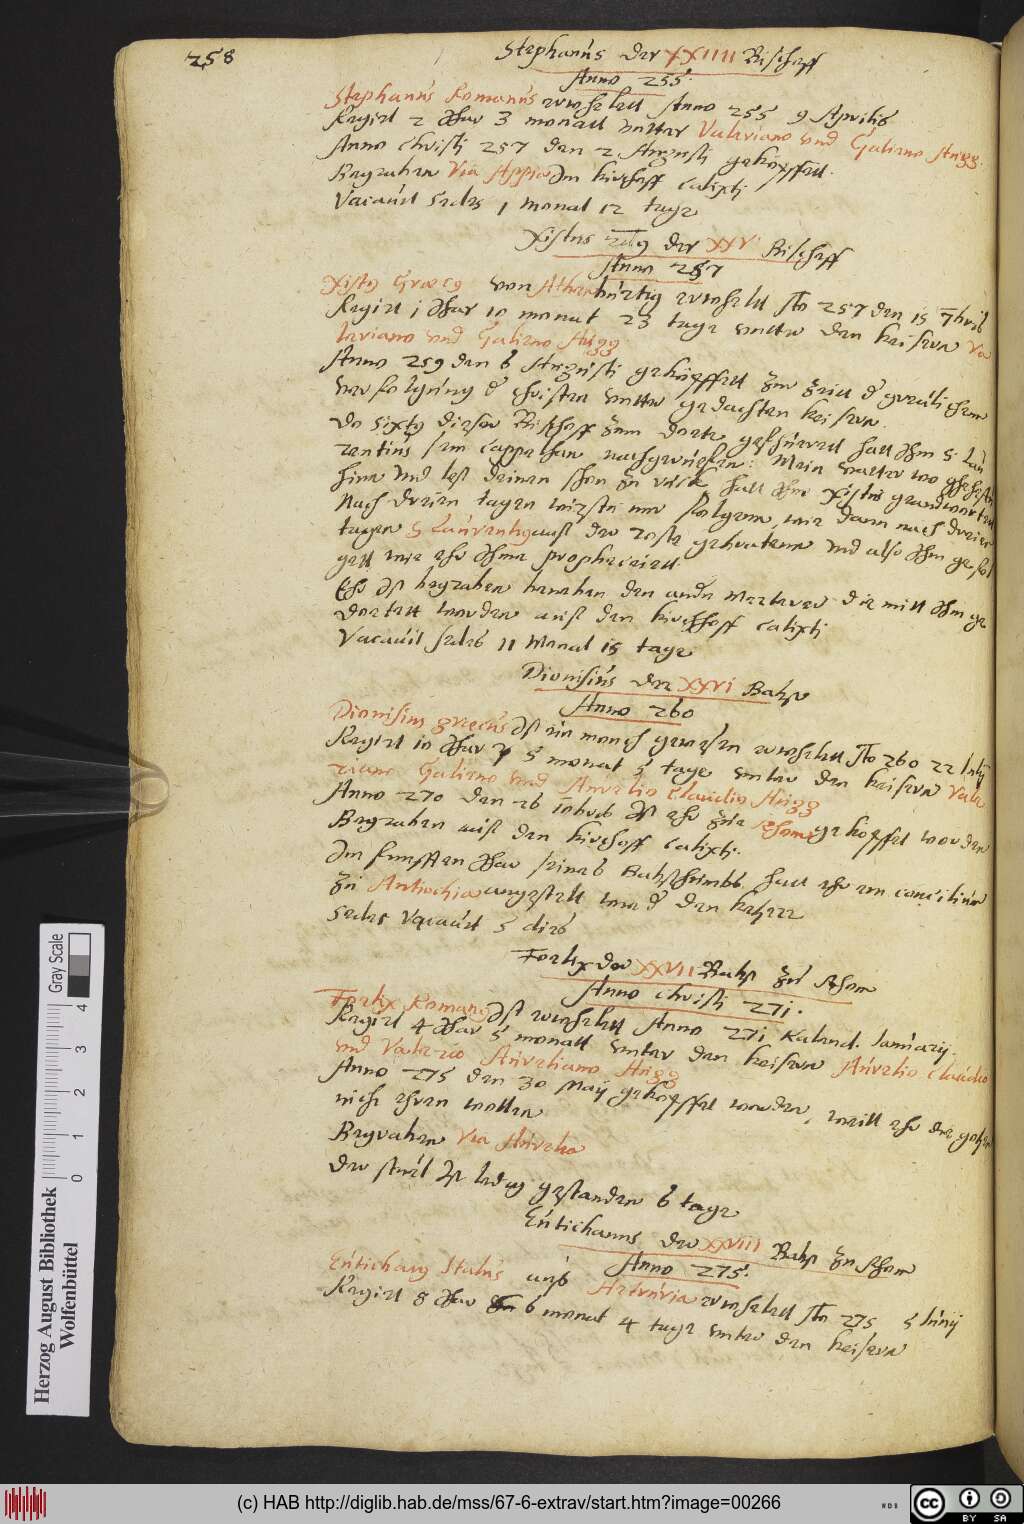 258
Stephanus der XXIIII Bischoff
Anno 255.
Stephanus Romanus erwehlett Anno 255 9 Aprilis
Regirt 2 Jhar 3 monatt untter Valeriano und Galieno Augg.
Anno Christi 257 den 2 Augusti gekopffett.
Begraben Via Appia Im kirchoff Calixti
Vacauit Sedes 1 Monat 12 tage
Xistus der XXV Bischoff
Anno 257
Xistus Graecus von Athen burtig erwehlett Ao 257 den 15 7bris
Regirt 1 Jhar 10 monat 23 tage untter den keisern Va
leriano und Galieno Augg
Anno 259 den 6 Augusti gekopffett zur zeitt der greulichen
verfolgung der Christen untter gedachten keisern.
Do Sixtus dieser Bischoff zum dode gefhueret hatt Jhm S. Lau
rentius sein Cappelhan nachgeruffen: Mein vatter wo gehestu
hinn und lest deinen shon zu rück hatt Jhm Xistus geandwortet
Nach dreien tagen wirstu mir folgenn, wie dann nach dreien
tagen S Laurentius auff der roste gebratenn und also Jhm gefol
gett wie ehr Jhme propheceiett
Ehr Jst begraben beneben den andn Merterer die mitt Jhm ge
doetett worden auff den kirchhoff Calixti
Vacauit sedes 11 Monat 15 tage
Dionisius der XXVI Babst
Anno 260
Dionisius graecus Jst ein monch gewesen erwehlett Ao 260 22 Julij
Regirt 10 Jhar 5 monat 5 tage untter den keisern Vale
riano Galieno und Aurelio Claudio Augg
Anno 270 den 26 10bris Jst ehr zue Rhome gekopffet worden
Begraben auff den kirchoff Calixti.
Im funfften Jhar seines Babsthumbs hatt ehr ein concilium
zu Antiochia angestelt der ketzer
Sedes Vacauit 5 dies
Foelix der XXVII Babst zu Rhom
Anno Christi 271.
Foelix Romanus Jst erwehlett Anno 271 Kalend. Januarij
Regirt 4 Jhar 5 monatt untter den keisern Aurelio Claudio
und Valerio Aureliano Augg
Anno 275 den 30 Maij gekopffet worden, weill ehr die gotzen
nich ehren wollen
Begraben Via Aurelia
Der stuel Jst ledig gestanden 6 tage
Eutichanus der XXVIII Babst zu Rhom
Anno 275.
Eutichanus Italus aus Hetruria erwehlett Ao 275 5 Junij
Regirt 8 Jhar 6 monat 4 tage untter den keisern
Gray Scale
0 1 2 3 4
Herzog August Bibliothek
Wolfenbüttel
(c) HAB http://diglib.hab.de/mss/67-6-extrav/start.htm?image=00266
WDB
CC BY SA